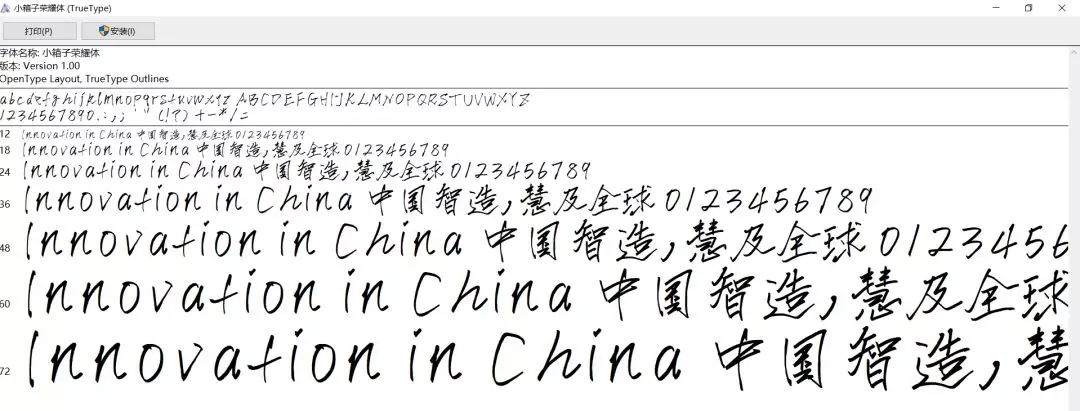 小箱子荣耀体 (TrueType)
打印(P) 安装(I)
字体名称: 小箱子荣耀体
版本: Version 1.00
OpenType Layout, TrueType Outlines
abcdefghijklmnopqrstuvwxyz ABCDEFGHIJKLMNOPQRSTUVWXYZ
1234567890.:,; ' " (!?) +-*/=
12 Innovation in China 中国智造,慧及全球 0123456789
18 Innovation in China 中国智造,慧及全球 0123456789
24 Innovation in China 中国智造,慧及全球 0123456789
36 Innovation in China 中国智造,慧及全球 0123456789
48 Innovation in China 中国智造,慧及全球 0123456
60 Innovation in China 中国智造,慧及全球
72 Innovation in China 中国智造,慧